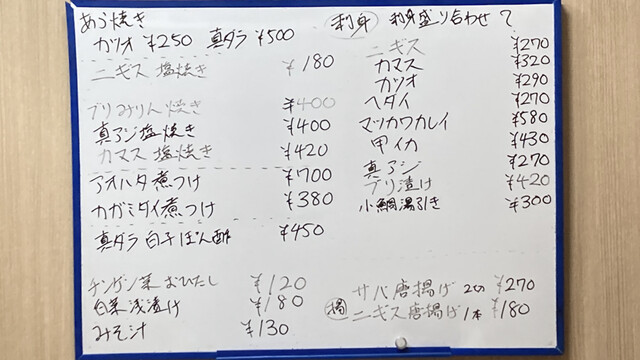 あら焼き
カツオ ¥250 真ダラ ¥500
ニギス 塩焼き ¥180
ブリみりん焼き ¥400
真アジ塩焼き ¥400
カマス 塩焼き ¥420
アオハタ煮つけ ¥700
カガミダイ煮つけ ¥380
真ダラ 白子ぽん酢 ¥450
チンゲン菜 おひたし ¥120
白菜 浅漬け ¥180
みそ汁 ¥130
刺身 刺身盛り合わせ
ニギス ¥270
カマス ¥320
カツオ ¥290
ヘダイ ¥270
マツカワカレイ ¥580
甲イカ ¥430
真アジ ¥270
ブリ漬け ¥420
小鯛湯引き ¥300
揚
サバ唐揚げ 2コ ¥270
ニギス唐揚げ 1本 ¥180